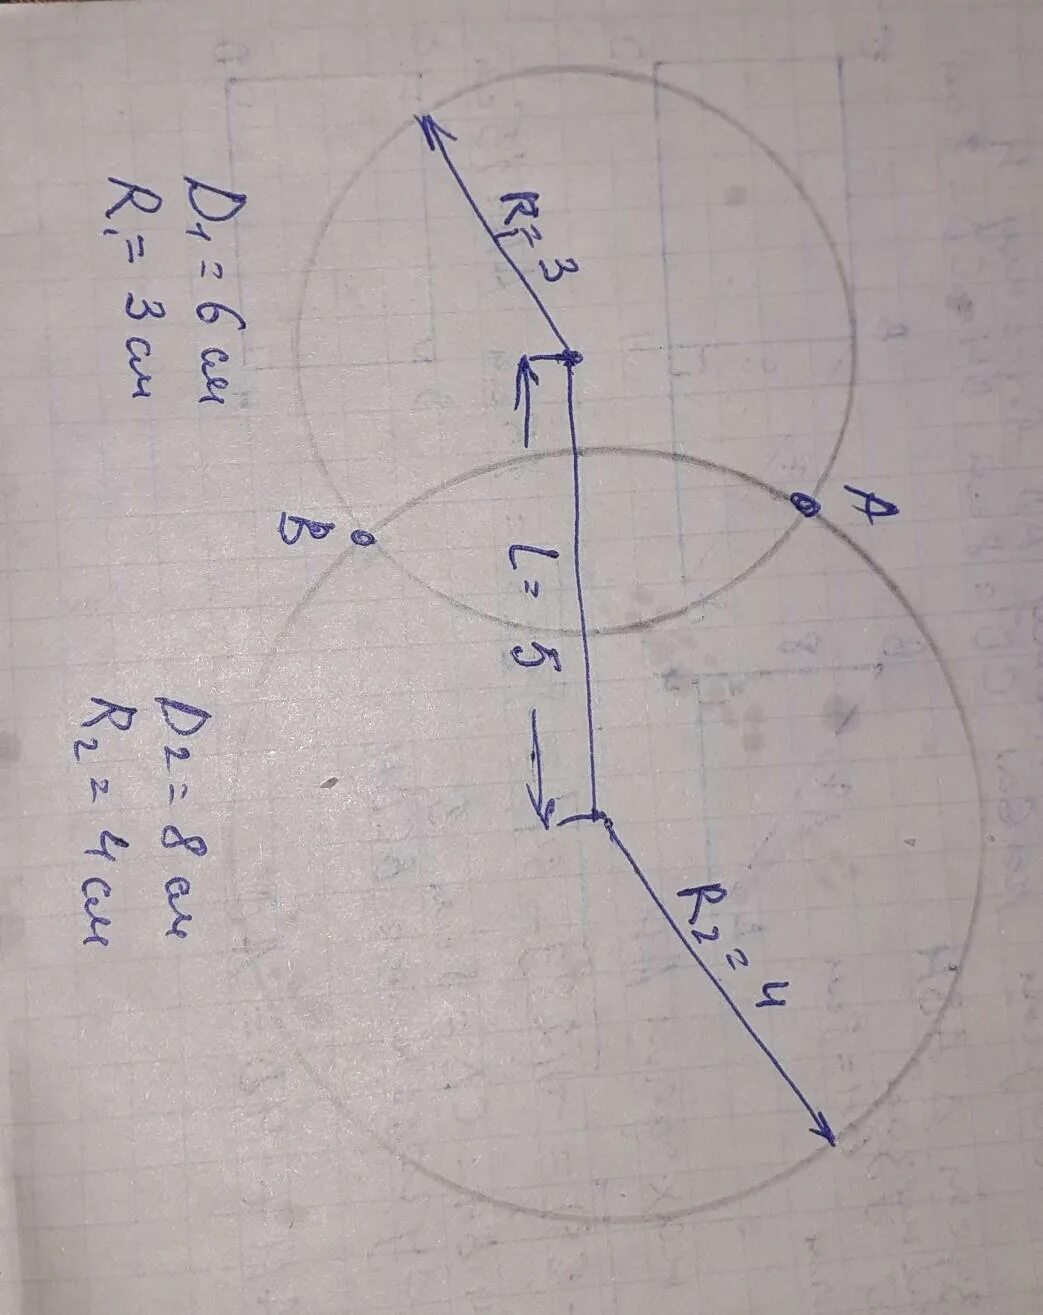 R₁=3
A
B
L= 5
R₂=4
D₁=6 см
R₁=3 см
D₂=8 см
R₂=4 см